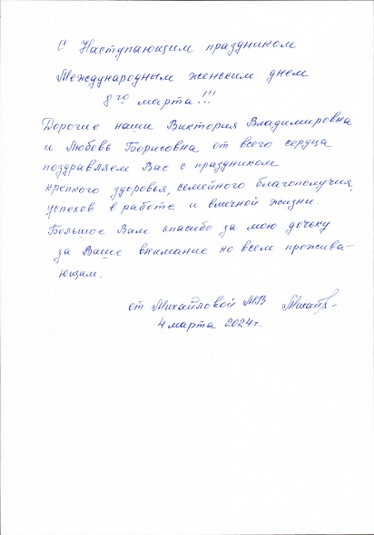 С Наступающим праздником
Международным женским днем
8го марта!!!
Дорогие наши Виктория Владимировна
и Любовь Борисовна от всего сердца
поздравляем Вас с праздником
крепкого здоровья, семейного благополучия,
успехов в работе и вличной жизни.
Большое Вам спасибо за мою дочьку
за Ваше внимание ко всем прожива-
ющим.
от Михайловой М.В
4 марта 2024г.